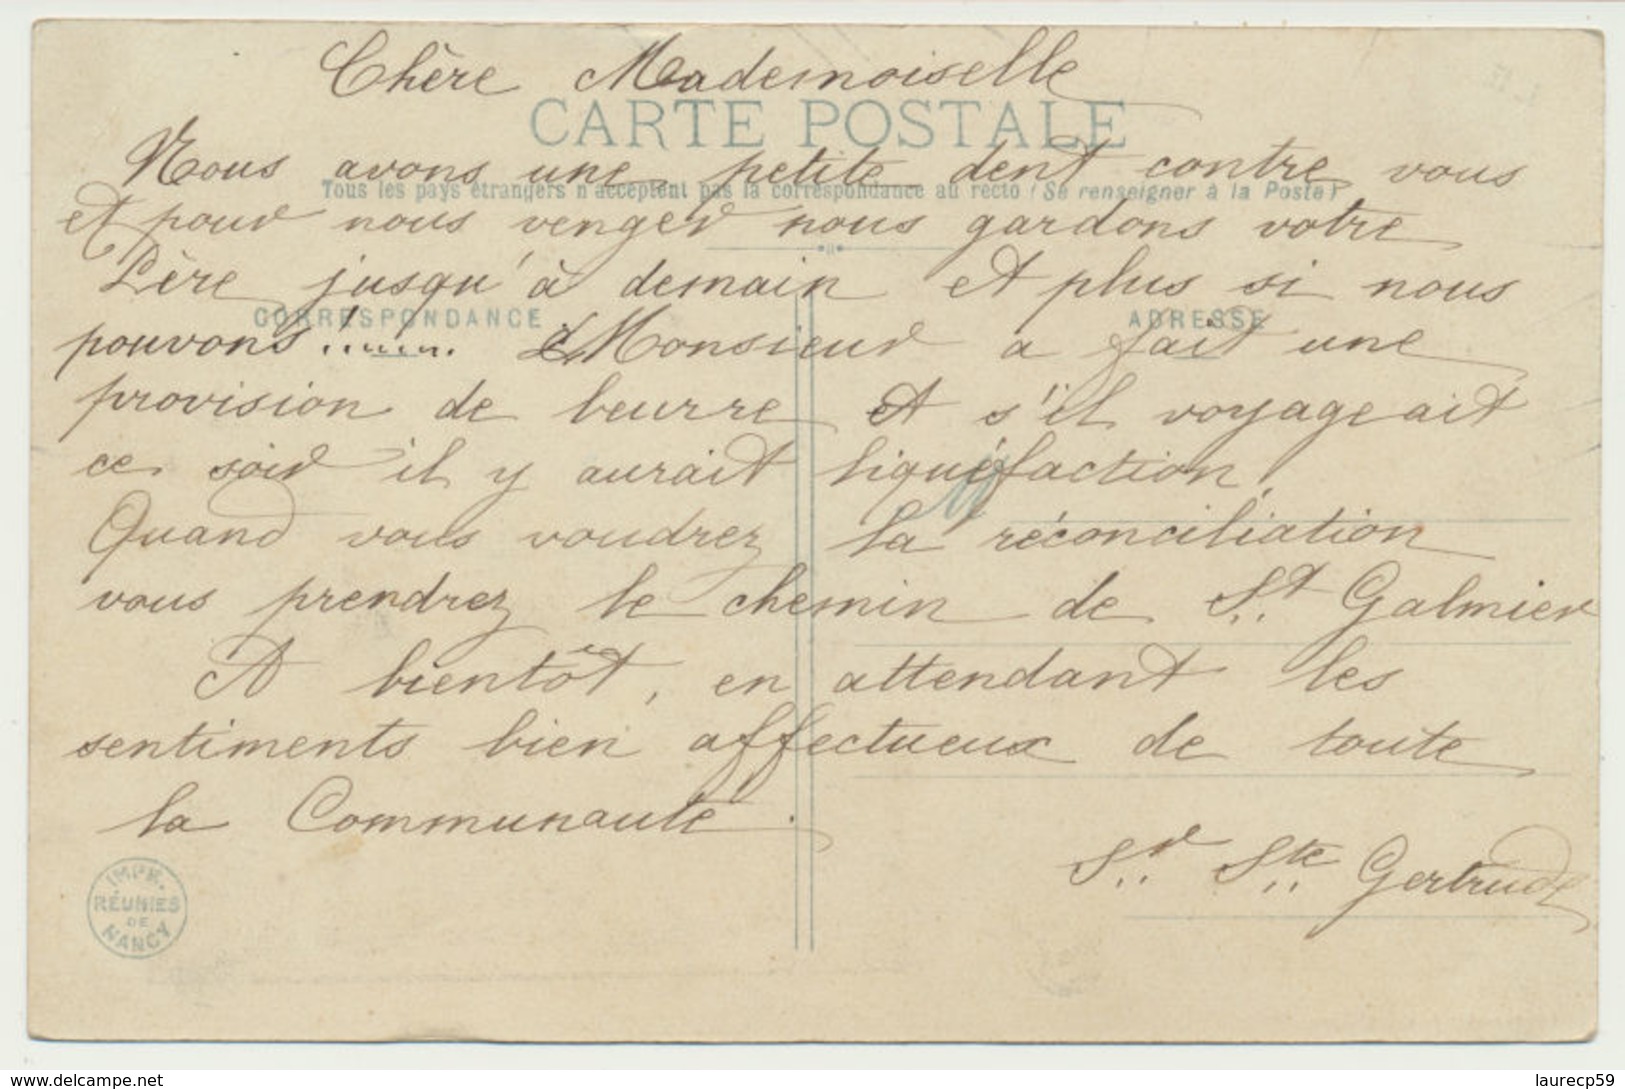 Chère Mademoiselle
CARTE POSTALE
Nous avons une petite dent contre vous
Tous les pays étrangers n'acceptent pas la correspondance au recto (Se renseigner à la Poste)
et pour nous venger nous gardons votre
Père jusqu'à demain et plus si nous
CORRESPONDANCE
ADRESSE
pouvons !...... Monsieur a fait une
provision de beurre et s'il voyageait
ce soir il y aurait liquéfaction.
Quand vous voudrez la réconciliation
vous prendrez le chemin de St Galmier
A bientôt, en attendant les
sentiments bien affectueux de toute
la Communauté.
Sr Ste Gertrude
IMPR. RÉUNIES DE NANCY
www.delcampe.net
laurecp59